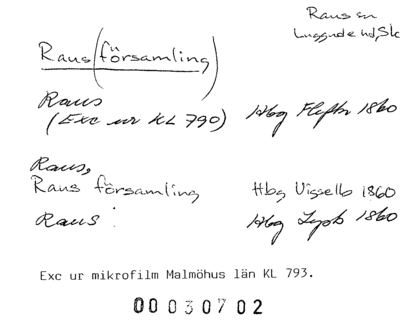 Raus sn
Luggude hd, Sk
Raus (församling)
Raus
(Exc ur KL 790) Hbg Flyttn 1860
Raus,
Raus församling Hbg Vigsellb 1860
Raus : Hbg Lysb 1860
Exc ur mikrofilm Malmöhus län KL 793.
00030702